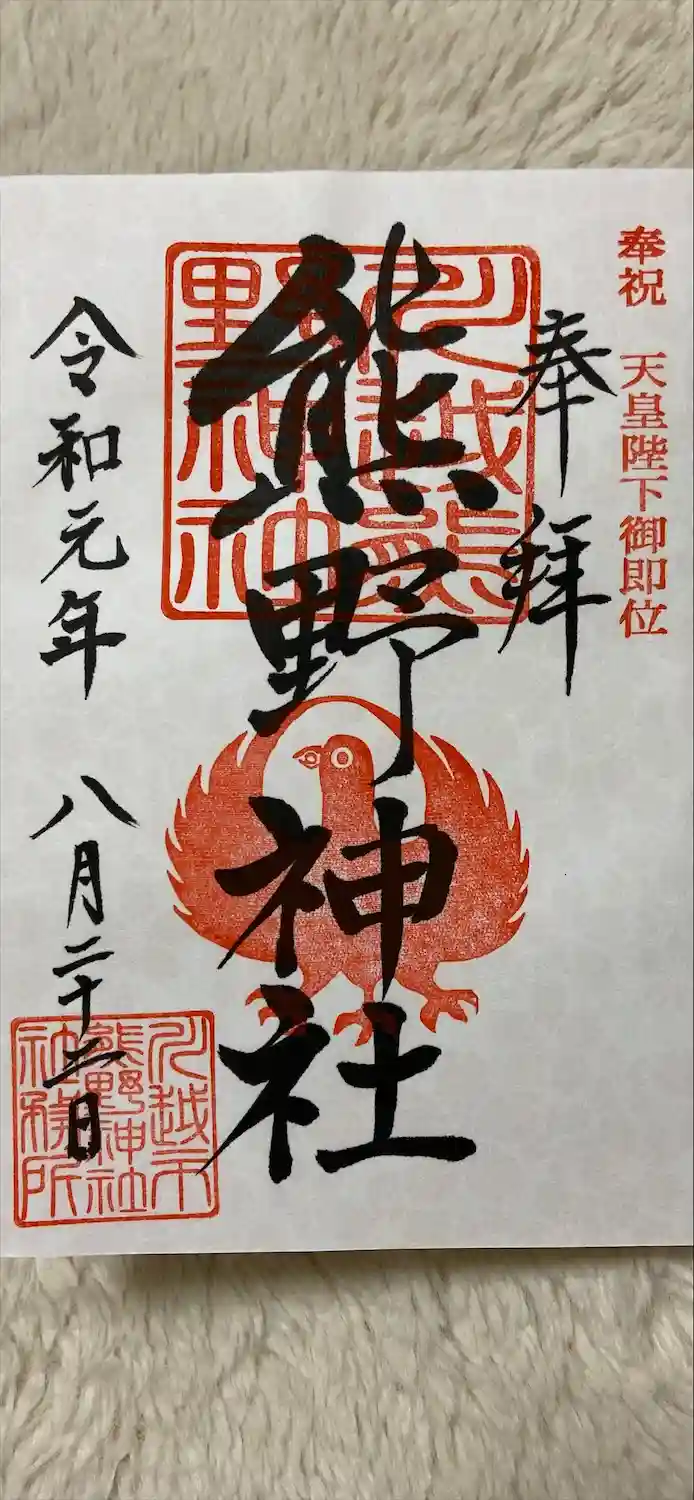 奉祝 天皇陛下御即位
奉拝
川越熊
野神社
熊野神社
令和元年 八月二十二日
川越市
熊野神社
社務所